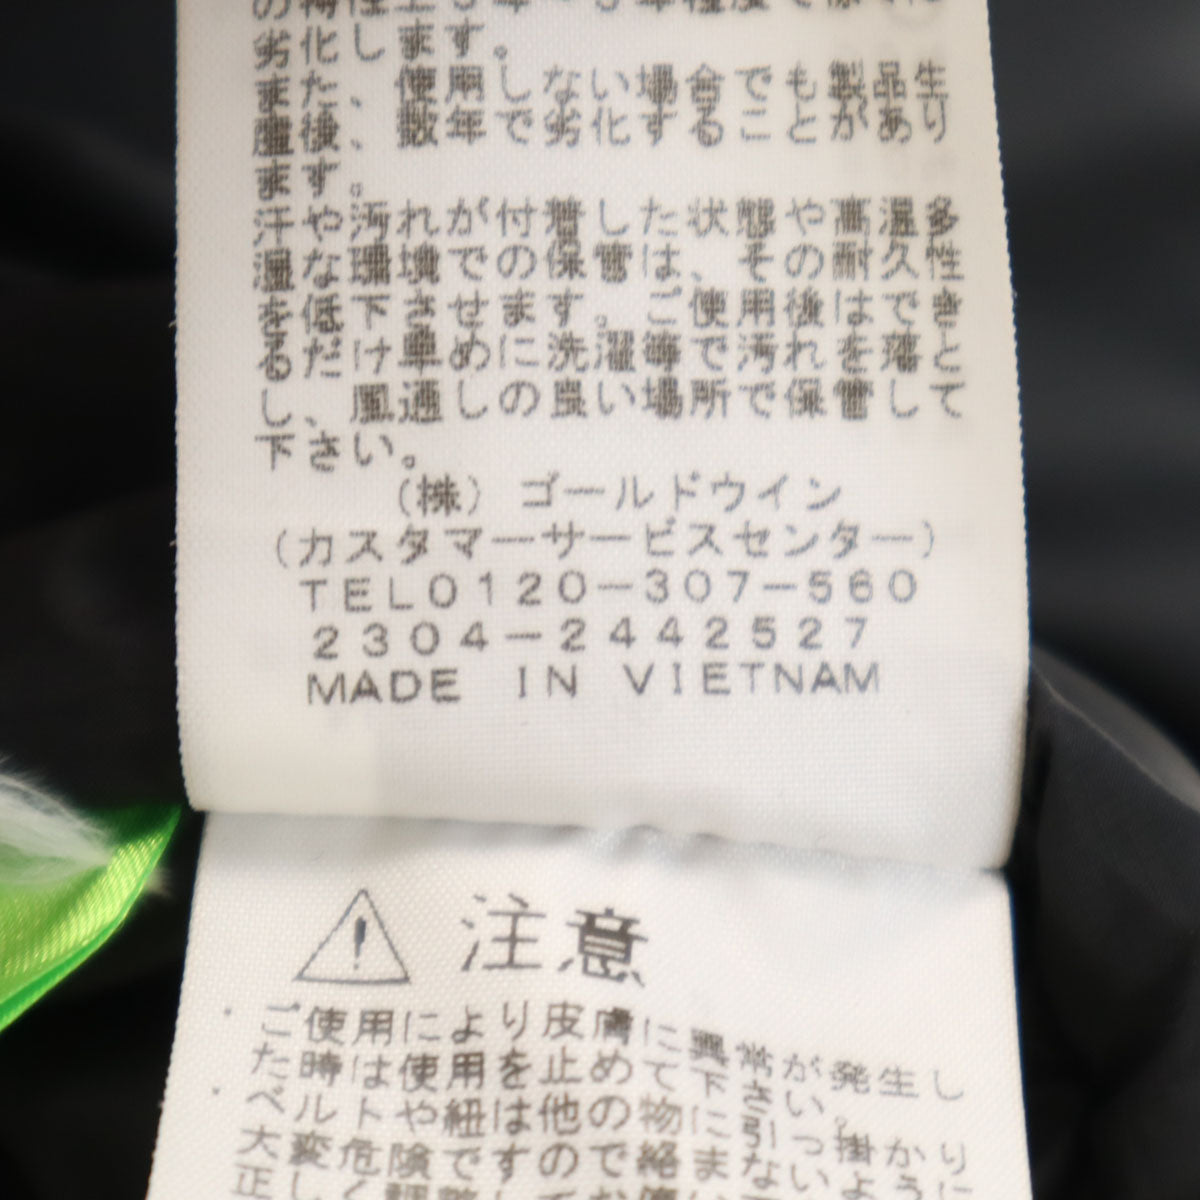 劣化します。
また、使用しない場合でも製品生
産後、数年で劣化することがあり
ます。
汗や汚れが付着した状態や高温多
湿な環境での保管は、その耐久性
を低下させます。ご使用後はできる
だけ単めに洗濯等で汚れを落と
し、風通しの良い場所で保管して
下さい。
(株)ゴールドウイン
(カスタマーサービスセンター)
TEL0120-307-560
2304-2442527
MADE IN VIETNAM
注意
・ご使用により皮膚に異常が発生し
た時は使用を止めて下さい。
・ベルトや紐は他の物に引っ掛かり
大変危険ですので絡まないよう